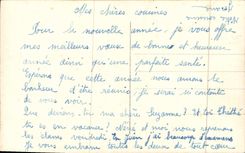 Mes chères cousines
Pour la nouvelle année, je vous offre
mes meilleurs vœux de bonne et heureuse
année ainsi qu'une parfaite santé.
Espérons que cette année nous aurons le
bonheur d'être réunis je serai si contente
de vous voir.
Que deviens-tu ma chère Suzanne? Et toi
tu es en vacances? Nous et moi nous reprenons
les classes vendredi. En juin j'ai beaucoup d'examens
Je vous embrasse toutes les deux de tout cœur